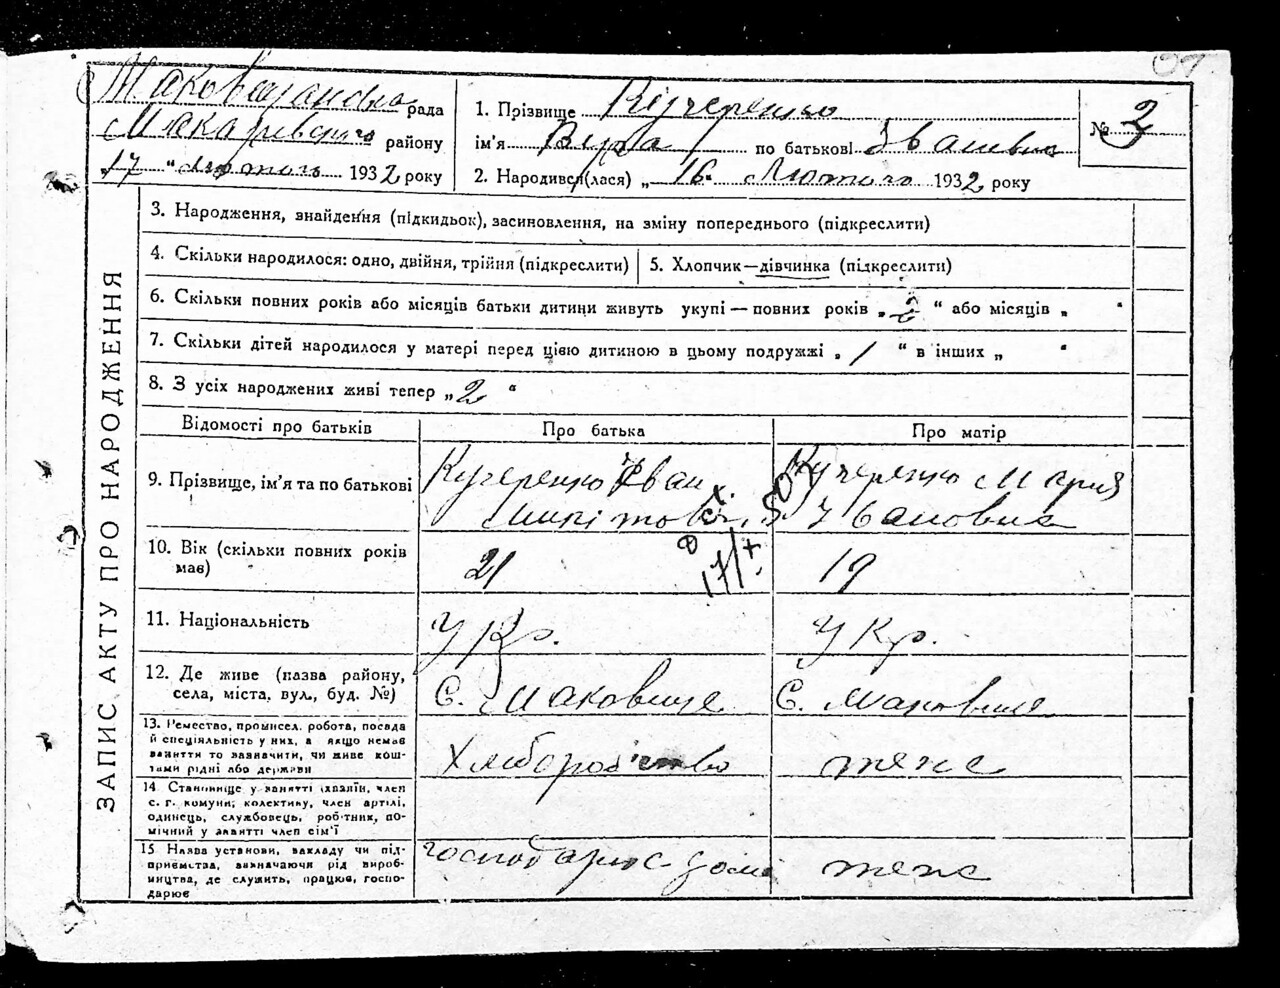 рада
Макарівського району
17 " лютого 1932 року
1. Прізвище Кучеренко
ім'я Віра по батькові Іванівна
2. Народився(лася) „ 16. Лютого 1932 року
№ 2
ЗАПИС АКТУ ПРО НАРОДЖЕННЯ
3. Народження, знайдення (підкидьок), засиновлення, на зміну попереднього (підкреслити)
4. Скільки народилося: одно, двійня, трійня (підкреслити)
5. Хлопчик—дівчинка (підкреслити)
6. Скільки повних років або місяців батьки дитини живуть укупі — повних років „ 2 “ або місяців „ “
7. Скільки дітей народилося у матері перед цією дитиною в цьому подружжі „ 1 “ в інших „ “
8. З усіх народжених живі тепер „ 2 “
Відомості про батьків
Про батька
Про матір
9. Прізвище, ім'я та по батькові
Кучеренко Іван
Кучеренко Мария
Івановна
10. Вік (скільки повних років
має)
21
19
11. Національність
Укр.
Укр.
12. Де живе (назва району,
села, міста, вул., буд. №)
С. Маковище
С. Маковище
13. Ремество, промисел, робота, посада
й спеціяльність у них, а якщо немає
заняття то зазначити, чи живе кош-
тами рідні або держави
Хліборобство
теж
14 Становище у занятті (хазяїн, член
с. г. комуни; колективу, член артілі,
одинець, службовець, робітник, по-
мічний у занятті член сім'ї
15 Назва установи, закладу чи під-
приємства, зазначаючи рід вироб-
ництва, де служить, працює, госпо-
дарює
господарює дома
теж